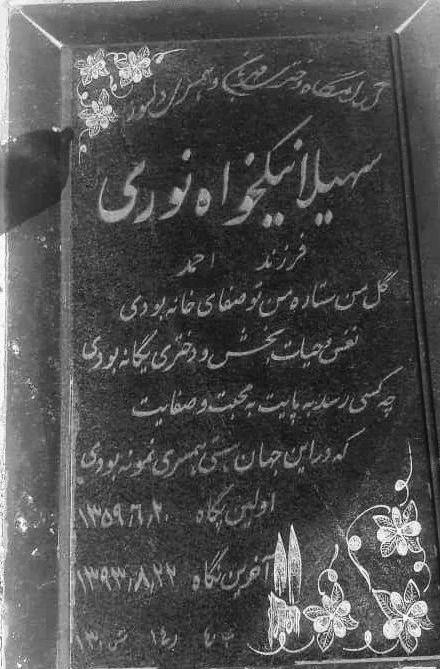 آرامگاه دختری مهربان و همسری دلسوز
سهیلا نیکخواه نوری
فرزند احمد
گل من ستاره من تو صفای خانه بودی
نفس و حیات بخش و دختری یگانه بودی
چه کسی رسد به پایت به محبت و صفایت
که در این جهان هستی همسری نمونه بودی
اولین نگاه ۱۳۵۹٫۶٫۲۰
آخرین نگاه ۱۳۹۳٫۸٫۲۲